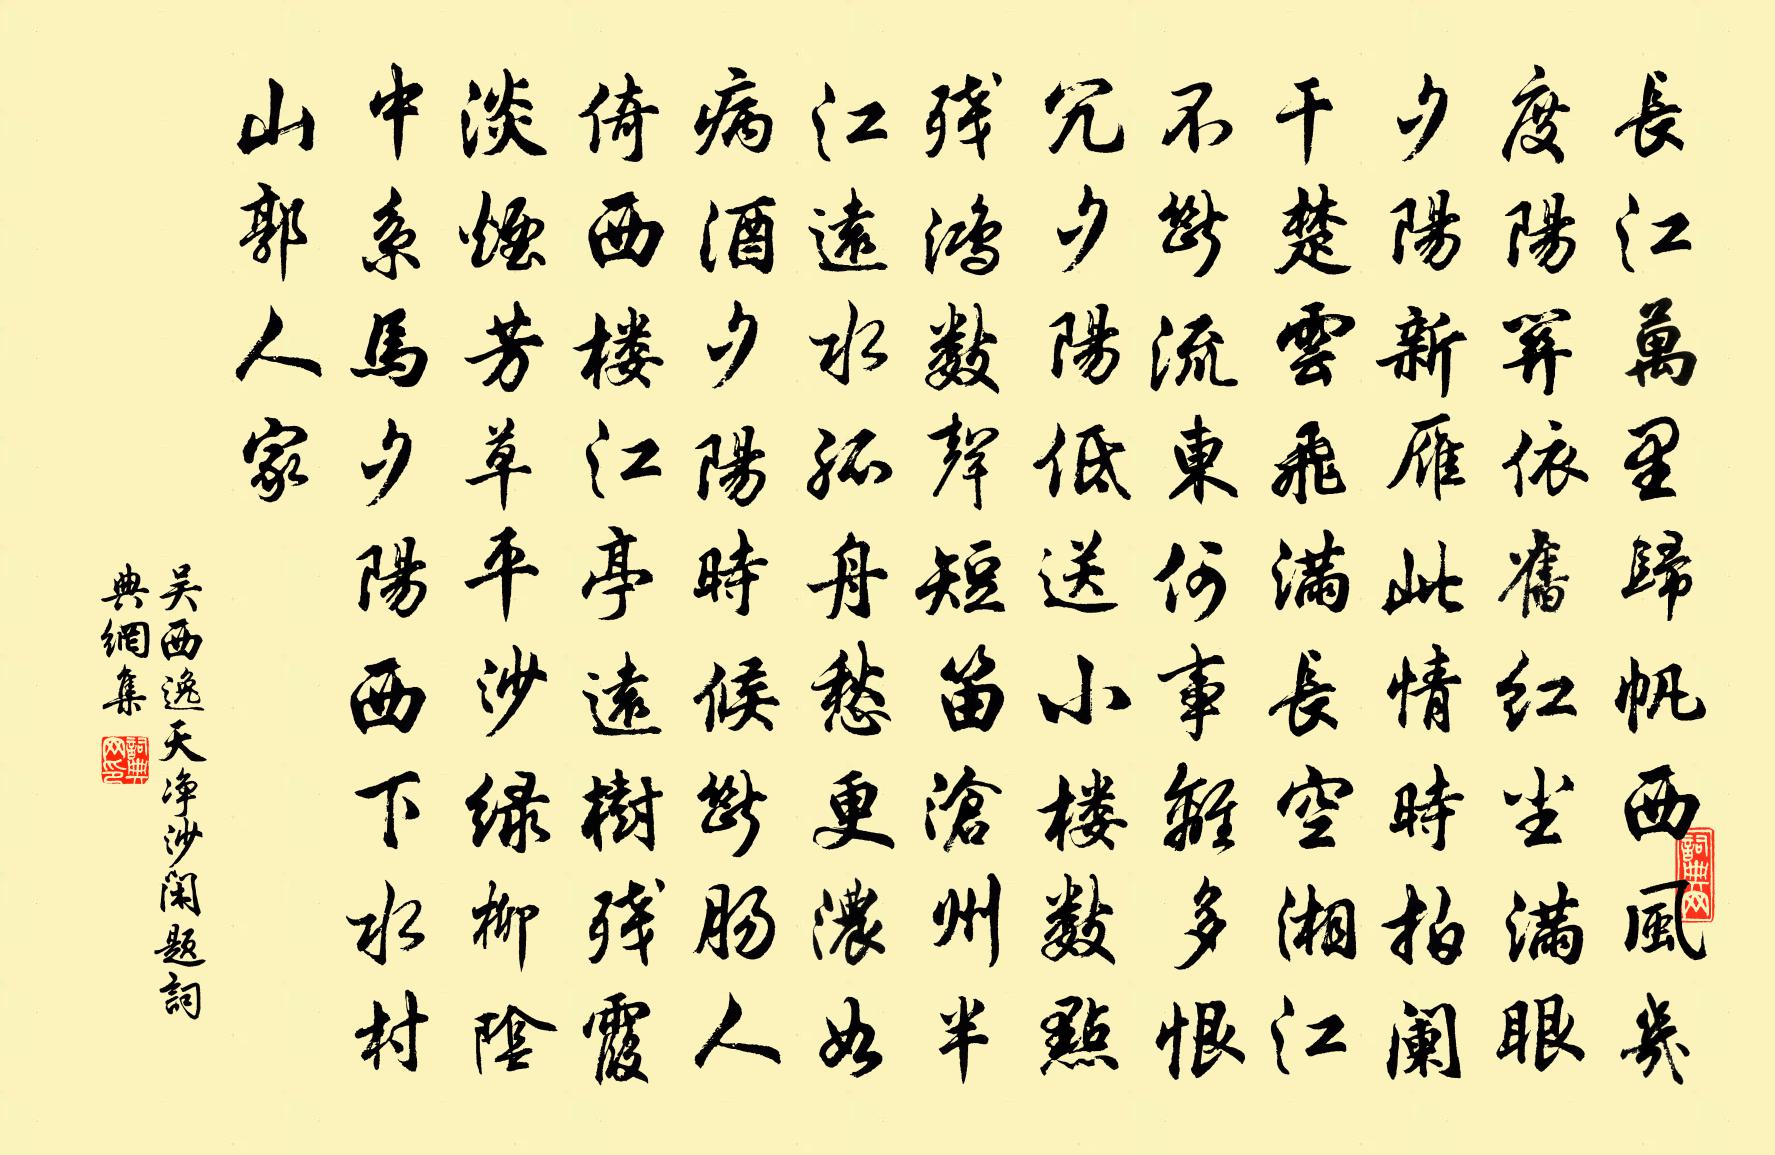 長江萬里歸帆西風幾
度陽關依舊紅尘滿眼
夕陽新雁此情時拍闌
干楚雲飛滿長空湘江
不斷流東何事離多恨
冗夕陽低送小楼數點
残鴻數聲短笛滄州半
江遠水孤舟愁更濃如
病酒夕陽時候斷腸人
倚西楼江亭遠樹残霞
淡煙芳草平沙绿柳陰
中系馬夕陽西下水村
山郭人家
吴西逸天净沙闲題詞
典網集
詞典网
詞典网印